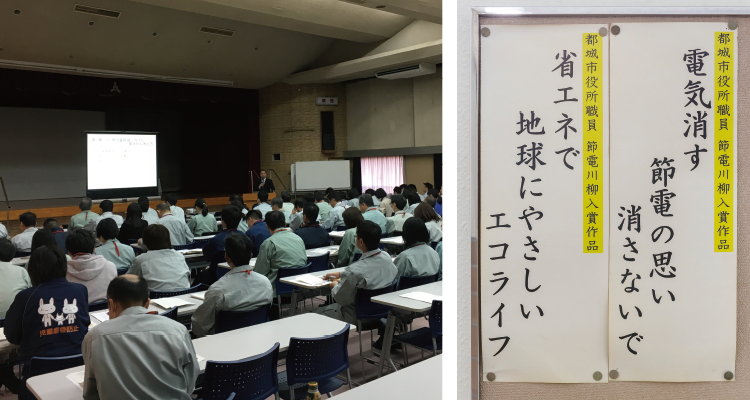 都城市役所職員 節電川柳入賞作品
電気消す
節電の思い
消さないで
都城市役所職員 節電川柳入賞作品
省エネで
地球にやさしい
エコライフ
児童虐待防止